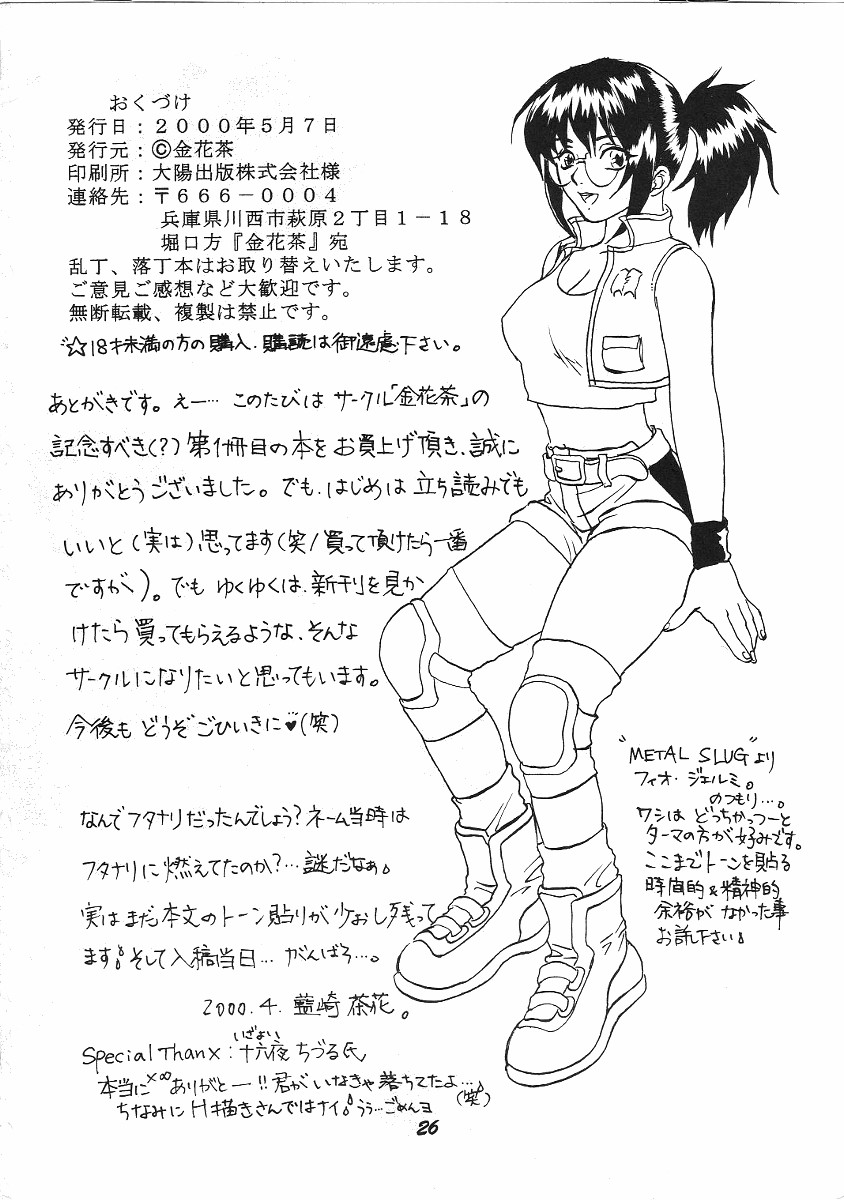 おくづけ
発行日:2000年5月7日
発行元:©金花茶
印刷所:大陽出版株式会社様
連絡先:〒666-0004
兵庫県川西市萩原2丁目1-18
堀口方『金花茶』宛
乱丁、落丁本はお取り替えいたします。
ご意見ご感想など大歓迎です。
無断転載、複製は禁止です。
☆18才未満の方の購入、購読は御遠慮下さい。
あとがきです。えー…このたびは サークル「金花茶」の
記念すべき(?)第1冊目の本を お買上げ頂き、誠に
ありがとうございました。でも、はじめは 立ち読みでも
いいと(実は)思ってます(笑/買って頂けたら一番
ですが)。でも ゆくゆくは、新刊を見か
けたら 買ってもらえるような、そんな
サークルになりたいと思ってもいます。
今後も どうぞ ごひいきに♥(笑)
なんでフタナリだったんでしょう?ネーム当時は
フタナリに燃えてたのか?…謎だなぁ。
実は まだ本文のトーン貼りが少おし残って
ます。そして入稿当日… がんばろ…。
2000.4. 藍崎 茶花。
Special Thanx:十六夜 ちづる氏
いざよい
本当に×∞ありがとー!!君がいなきゃ落ちてたよ…。(笑)
ちなみに H描きさんではナイ。うぅ…ごめんヨ
"METAL SLUG"より
フィオ・ジェルミ。
のつもり…。
ワシは どっちかっつーと
ターマの方が好みです。
ここまでトーンを貼る
時間的&精神的
余裕が なかった事
お許し下さい。
26